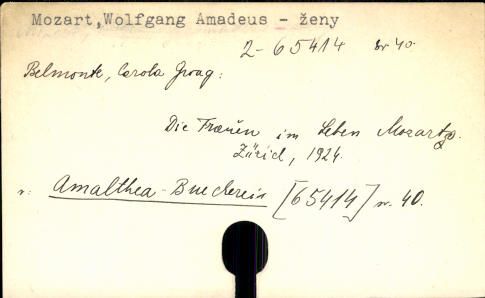 Mozart,Wolfgang Amadeus - ženy
2-65414 Sv 40.
Belmonte, Carola Groag:
Die Frauen im Leben Mozarts.
Zürich, 1924.
v: Amalthea-Buecherei [65414] sv. 40.